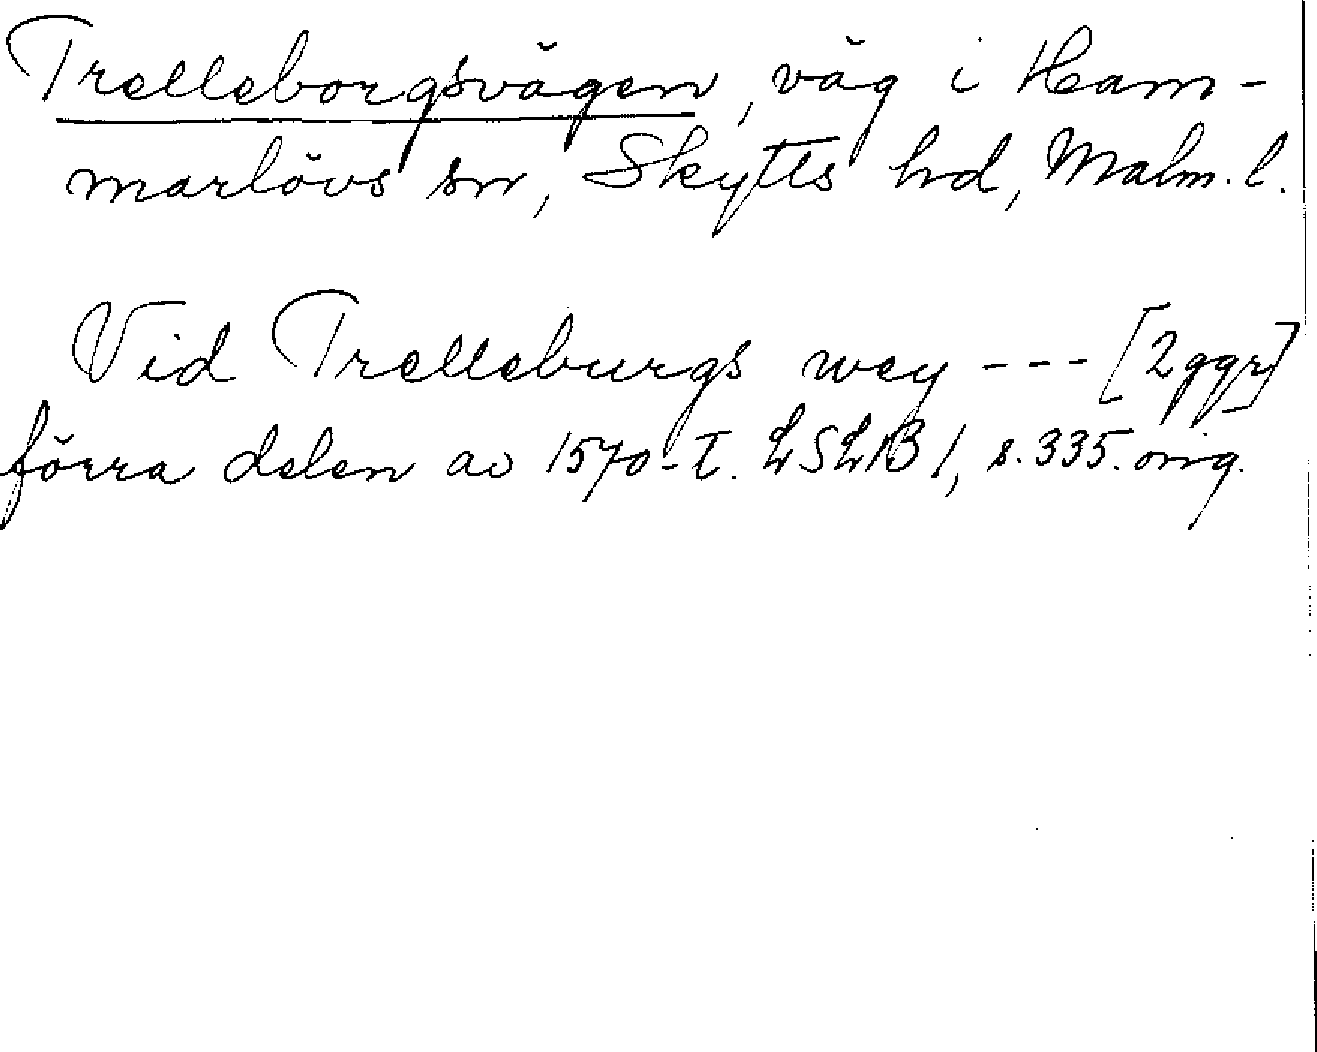 Trelleborgsvägen, väg i Ham-
marlövs sn, Skytts hd, Malm. l.
Vid Trelleburgs wey --- [2ggr]
förra delen av 1570-t. LSLB 1, s. 335. orig.